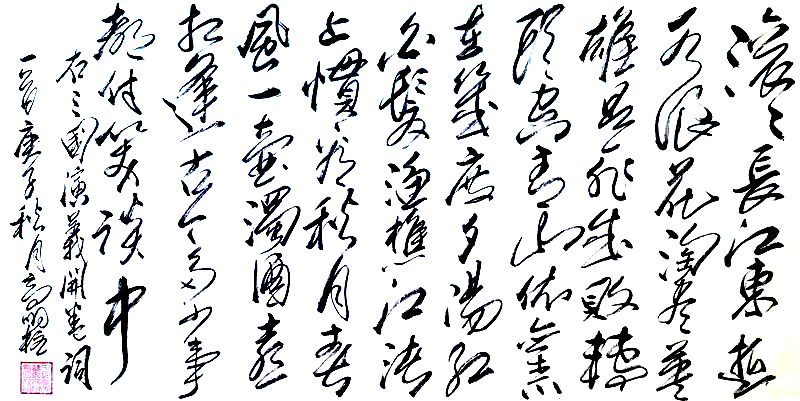 滚〻長江東逝
水浪花淘盡英
雄是非成敗轉
頭空青山依舊
在幾度夕陽紅
白髮漁樵江渚
上慣看秋月春
風一壺濁酒喜
相逢古今多少事
都付笑談中
右三國演義開卷詞
一首庚子秋月